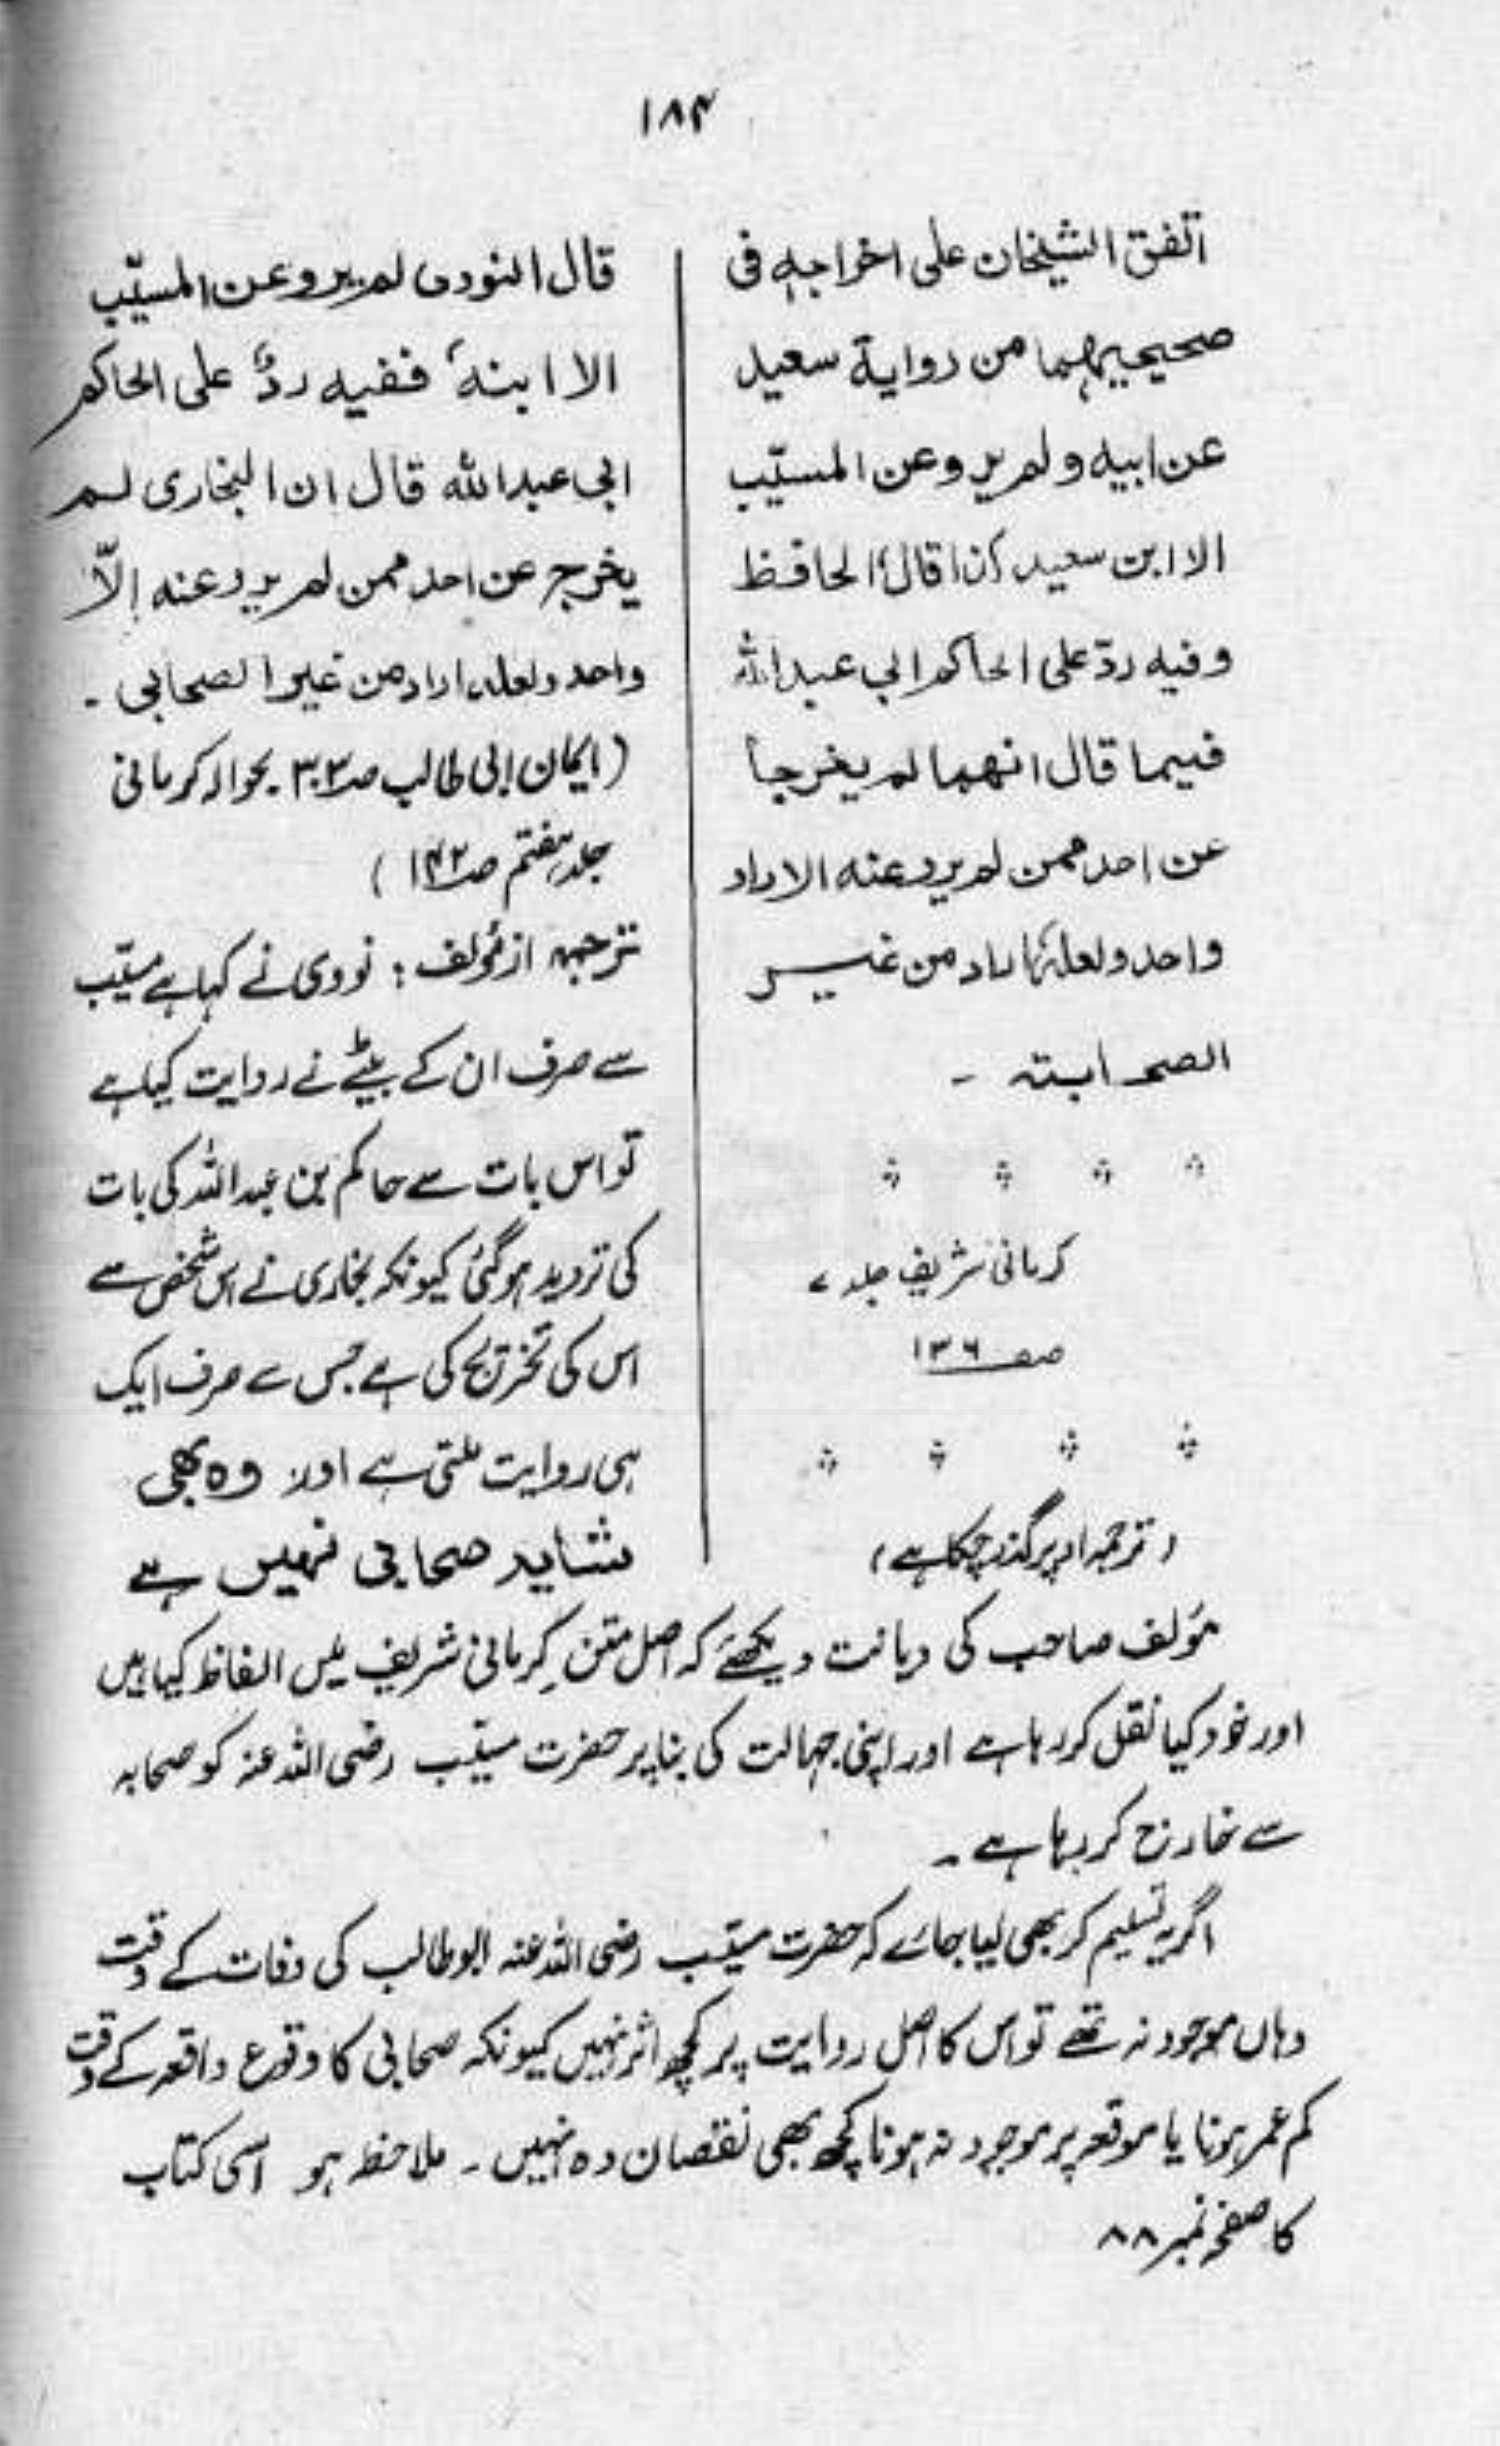 ۱۸۴
اتفق الشیخان علی اخراجہٖ فی
صحیحیہما من روایة سعید
عن ابیہ ولم یرو عن المسیّب
الا ابن سعید کذا قال الحافظ
وفیہ ردّ علی الحاکم ابی عبداللہ
فیما قال انھما لم یخرجا
عن احد ممن لم یرو عنہ الا راو
واحد ولعلہٗ اراد من غیر
الصحابة ۔
کرمانی شریف جلد ۷
صفـ ۱۳۶
(ترجمہ اوپر گذر چکا ہے)
قال النووی لم یرو عن المسیّب
الا ابنہٗ ففیہ ردٌّ علی الحاکم
ابی عبداللہ قال ان البخاری لم
یخرج عن احد ممن لم یرو عنہ اِلّا
واحد ولعلہ اراد من غیر الصحابی ۔
(ایمان ابی طالب صـ ۳۰۲ بحوالہ کرمانی
جلد ہفتم صـ ۱۴۲)
ترجمہ از مؤلف : نووی نے کہا ہے مسیّب
سے صرف ان کے بیٹے نے روایت کیا ہے
تو اس بات سے حاکم بن عبداللہ کی بات
کی تردید ہو گئی کیونکہ بخاری نے اس شخص سے
اس کی تخریج کی ہے جس سے صرف ایک
ہی روایت ملتی ہے اور وہ بھی
شاید صحابی نہیں ہے
مؤلف صاحب کی دیانت دیکھئے کہ اصل متنِ کرمانی شریف میں الفاظ کیا ہیں
اور خود کیا نقل کر رہا ہے اور اپنی جہالت کی بنا پر حضرت مسیّب رضی اللہ عنہ کو صحابہ
سے خارج کر رہا ہے ۔
اگر یہ تسلیم کر بھی لیا جائے کہ حضرت مسیّب رضی اللہ عنہ ابو طالب کی وفات کے وقت
وہاں موجود نہ تھے تو اس کا اصل روایت پر کچھ اثر نہیں کیونکہ صحابی کا وقوع واقعہ کے وقت
کم عمر ہونا یا موقعہ پر موجود نہ ہونا کچھ بھی نقصان دہ نہیں ۔ ملاحظہ ہو اسی کتاب
کا صفحہ نمبر ۸۸